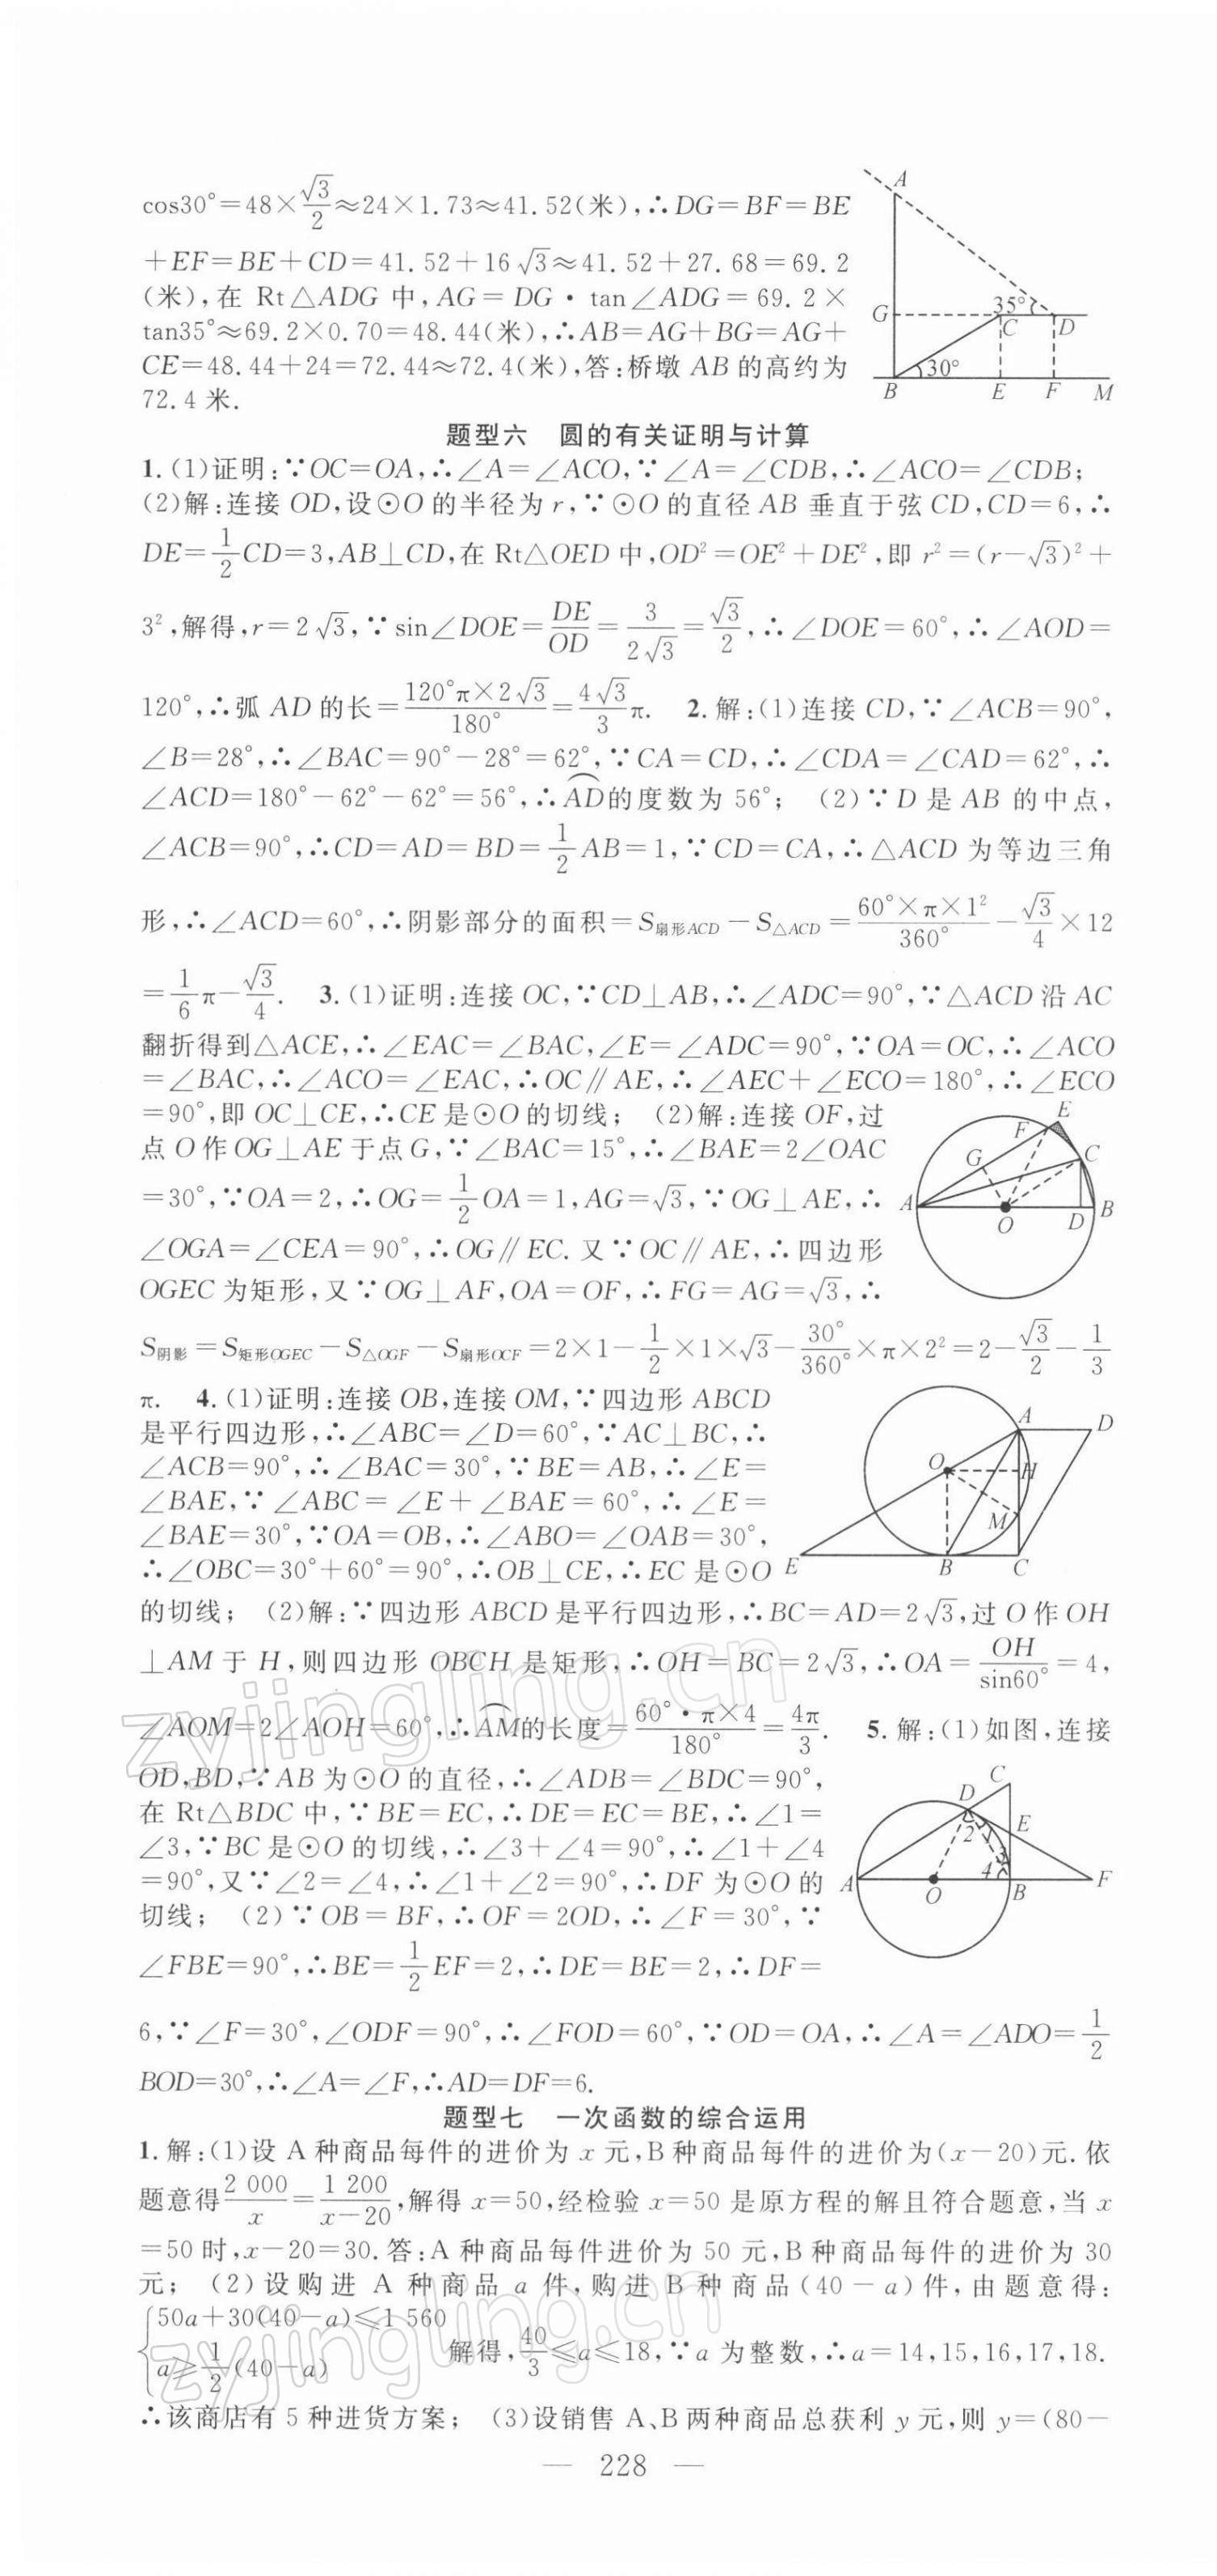 cos30°=48×√3/2≈24×1.73≈41.52(米),∴DG=BF=BE
+EF=BE+CD=41.52+16√3≈41.52+27.68=69.2
(米),在 Rt△ADG 中,AG=DG·tan∠ADG=69.2×
tan35°≈69.2×0.70=48.44(米),∴AB=AG+BG=AG+
CE=48.44+24=72.44≈72.4(米),答:桥墩 AB 的高约为
72.4 米.
A
G
35°
C
D
30°
B
E
F
M
题型六 圆的有关证明与计算
1.(1)证明:∵OC=OA,∴∠A=∠ACO,∵∠A=∠CDB,∴∠ACO=∠CDB;
(2)解:连接 OD,设⊙O 的半径为 r,∵⊙O 的直径 AB 垂直于弦 CD,CD=6,∴
DE=1/2CD=3,AB⊥CD,在 Rt△OED 中,OD²=OE²+DE²,即 r²=(r-√3)²+
3²,解得,r=2√3,∵sin∠DOE=DE/OD=3/2√3=√3/2,∴∠DOE=60°,∴∠AOD=
120°,∴弧 AD 的长=120°π×2√3/180°=4√3/3π. 2.解:(1)连接 CD,∵∠ACB=90°,
∠B=28°,∴∠BAC=90°-28°=62°,∵CA=CD,∴∠CDA=∠CAD=62°,∴
∠ACD=180°-62°-62°=56°,∴⌒AD的度数为 56°; (2)∵D 是 AB 的中点,
∠ACB=90°,∴CD=AD=BD=1/2AB=1,∵CD=CA,∴△ACD 为等边三角
形,∴∠ACD=60°,∴阴影部分的面积=S扇形ACD-S△ACD=60°×π×1²/360°-√3/4×12
=1/6π-√3/4. 3.(1)证明:连接 OC,∵CD⊥AB,∴∠ADC=90°,∵△ACD 沿 AC
翻折得到△ACE,∴∠EAC=∠BAC,∠E=∠ADC=90°,∵OA=OC,∴∠ACO
=∠BAC,∴∠ACO=∠EAC,∴OC∥AE,∴∠AEC+∠ECO=180°,∴∠ECO
=90°,即 OC⊥CE,∴CE 是⊙O 的切线; (2)解:连接 OF,过
点 O 作 OG⊥AE 于点 G,∵∠BAC=15°,∴∠BAE=2∠OAC
=30°,∵OA=2,∴OG=1/2OA=1,AG=√3,∵OG⊥AE,∴
∠OGA=∠CEA=90°,∴OG∥EC.又∵OC∥AE,∴四边形
OGEC 为矩形,又∵OG⊥AF,OA=OF,∴FG=AG=√3,∴
E
F
G
C
A
O
D
B
S阴影=S矩形OGEC-S△OGF-S扇形OCF=2×1-1/2×1×√3-30°/360°×π×2²=2-√3/2-1/3
π. 4.(1)证明:连接 OB,连接 OM,∵四边形 ABCD
是平行四边形,∴∠ABC=∠D=60°,∵AC⊥BC,∴
∠ACB=90°,∴∠BAC=30°,∵BE=AB,∴∠E=
∠BAE,∵∠ABC=∠E+∠BAE=60°,∴∠E=
∠BAE=30°,∵OA=OB,∴∠ABO=∠OAB=30°,
∴∠OBC=30°+60°=90°,∴OB⊥CE,∴EC 是⊙O
A
D
O
H
M
E
B
C
的切线; (2)解:∵四边形 ABCD 是平行四边形,∴BC=AD=2√3,过 O 作 OH
⊥AM 于 H,则四边形 OBCH 是矩形,∴OH=BC=2√3,∴OA=OH/sin60°=4,
∠AOM=2∠AOH=60°,∴⌒AM的长度=60°·π×4/180°=4π/3. 5.解:(1)如图,连接
OD,BD,∵AB 为⊙O 的直径,∴∠ADB=∠BDC=90°,
在 Rt△BDC 中,∵BE=EC,∴DE=EC=BE,∴∠1=
∠3,∵BC 是⊙O 的切线,∴∠3+∠4=90°,∴∠1+∠4
=90°,又∵∠2=∠4,∴∠1+∠2=90°,∴DF 为⊙O 的
切线; (2)∵OB=BF,∴OF=2OD,∴∠F=30°,∵
∠FBE=90°,∴BE=1/2EF=2,∴DE=BE=2,∴DF=
C
D
E
2
1
3
4
A
O
B
F
6,∵∠F=30°,∠ODF=90°,∴∠FOD=60°,∵OD=OA,∴∠A=∠ADO=1/2
BOD=30°,∴∠A=∠F,∴AD=DF=6.
题型七 一次函数的综合运用
1.解:(1)设 A 种商品每件的进价为 x 元,B 种商品每件的进价为(x-20)元.依
题意得2 000/x=1 200/x-20,解得 x=50,经检验 x=50 是原方程的解且符合题意,当 x
=50 时,x-20=30.答:A 种商品每件进价为 50 元,B 种商品每件的进价为 30
元; (2)设购进 A 种商品 a 件,购进 B 种商品(40-a)件,由题意得:
{50a+30(40-a)≤1 560
a≥1/2(40-a) 解得,40/3≤a≤18,∵a 为整数,∴a=14,15,16,17,18.
∴该商店有 5 种进货方案; (3)设销售 A、B 两种商品总获利 y 元,则 y=(80-
— 228 —
zyjingling.cn
zyjingling.cn